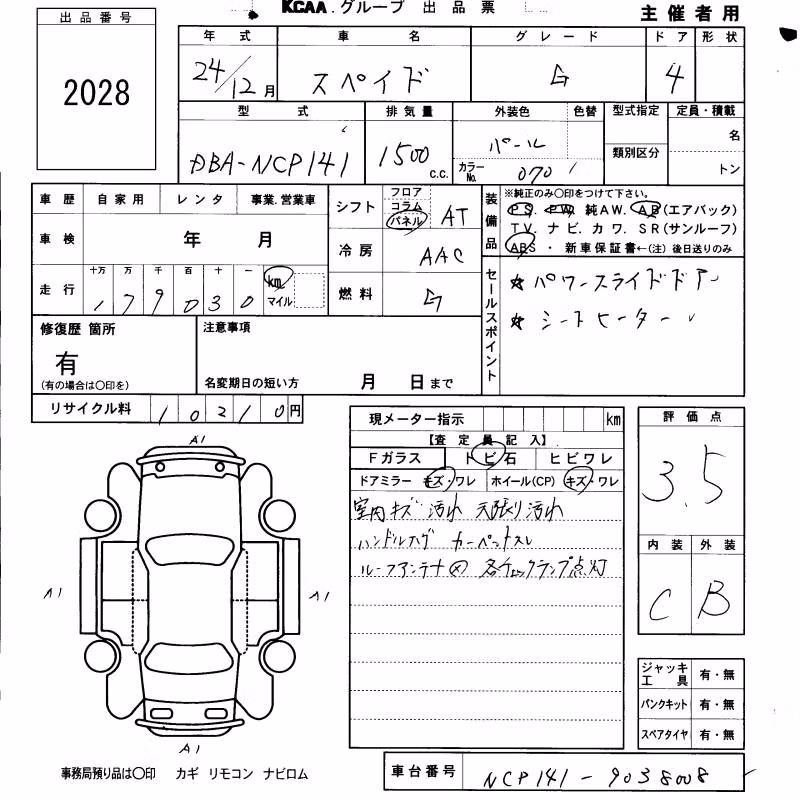 KCAA.グループ 出品票
主催者用
出品番号
2028
年式 車名 グレード ドア 形状
24/12月 スペイド G 4
型式 排気量 外装色 色替 型式指定 定員・積載
DBA-NCP141 1500 c.c. パール
カラーNo. 070
類別区分
名
トン
車歴 自家用 レンタ 事業.営業車
車検 年 月
走行 十万 万 千 百 十 一
179030 km マイル
シフト フロア コラム パネル AT
冷房 AAC
燃料 G
装備品
※純正のみ〇印をつけて下さい。
PS. PW. 純AW. AB(エアバック)
TV. ナビ. カワ. SR(サンルーフ)
ABS ・ 新車保証書←(注) 後日送りのみ
セールスポイント
☆ パワースライドドア
☆ シートヒーター
修復歴 箇所
有
(有の場合は〇印を)
注意事項
名変期日の短い方 月 日まで
リサイクル料 10210円
現メーター指示 km
【査定員記入】
Fガラス トビ石 ヒビワレ
ドアミラー キズ・ワレ ホイール(CP) キズ・ワレ
室内キズ 汚れ 天張り汚れ
ハンドルスレ カーペットスレ
ルーフアンテナ欠 各チェックランプ点灯
評価点
3.5
内装 外装
C B
A1
A1
A1
A1
ジャッキ工具 有・無
パンクキット 有・無
スペアタイヤ 有・無
事務局預り品は〇印 カギ リモコン ナビロム
車台番号 NCP141-9038008